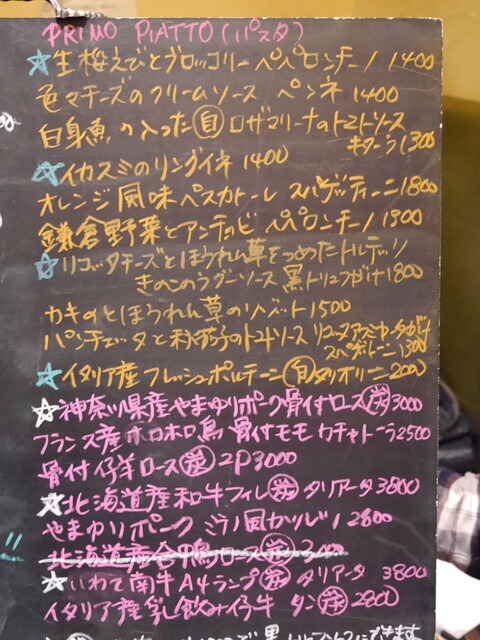 PRIMO PIATTO (パスタ)
☆生桜えびとブロッコリー ペペロンチーノ 1400
色々チーズのクリームソース ペンネ 1400
白身魚の入った 自 ロザマリーナのトマトソース
キターラ 1300
☆イカスミのリングイネ 1400
オレンジ風味ペスカトーレ スパゲッティーニ 1800
鎌倉野菜とアンチョビ ペペロンチーノ 1900
☆リコッタチーズとほうれん草をつめたトルテッリ
きのこのラグーソース 黒トリュフがけ 1800
カキのせほうれん草のリゾット 1500
パンチェッタと秋茄子のトマトソース リコッタアフミカータがけ
スパゲットーニ 1300
☆イタリア産フレッシュポルチーニ 自 タリオリーニ 2000
☆神奈川県産やまゆりポーク骨付ロース 炭 3000
フランス産ホロホロ鳥 骨付モモ カチャトーラ 2500
骨付仔羊ロース 炭 2P 3000
☆北海道産和牛フィレ 炭 タリアータ 3800
やまゆりポーク ミラノ風カツレツ 2800
北海道産合鴨ロース 炭
☆いわて南牛A4ランプ 炭 タリアータ 3800
イタリア産乳飲み仔牛 タン 炭 2800
!!